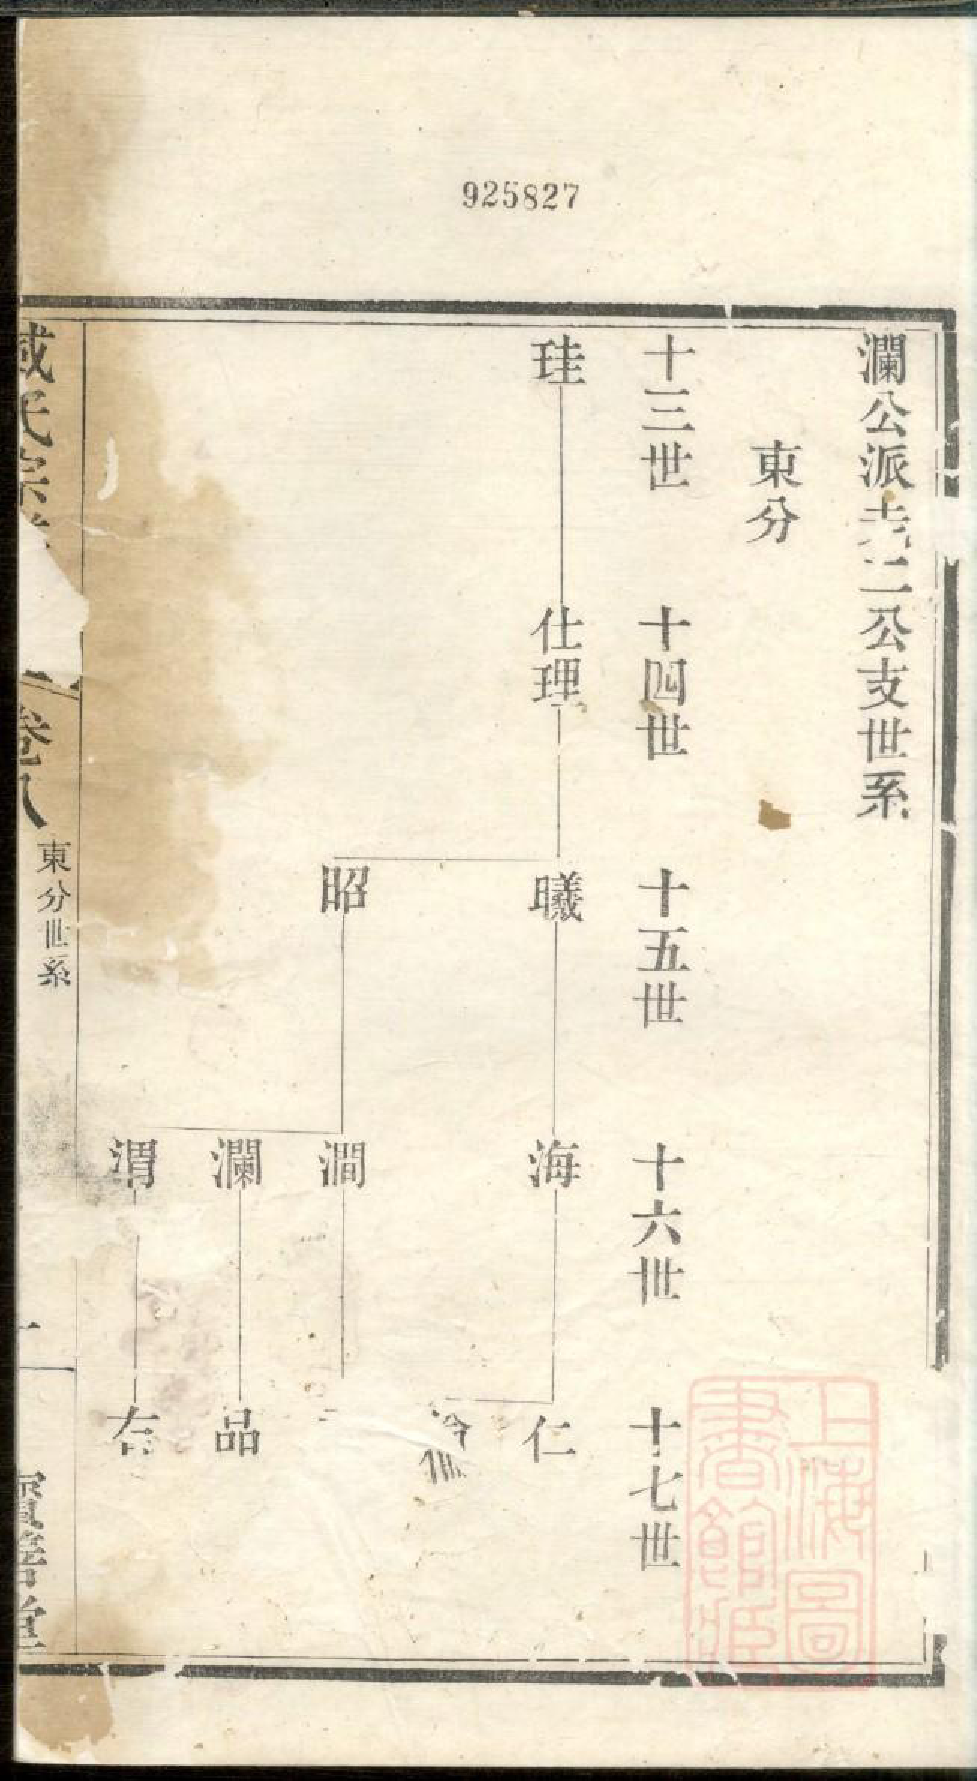 925827
瀾公派
二公支世系
東分
十三世
十四世
十五世
十六世
十七世
珪
仕理
曦
海
仁
昭
澗
瀾
品
渭
右
氏宗
卷八
東分世系
一
寶善堂
上海圖
書館藏